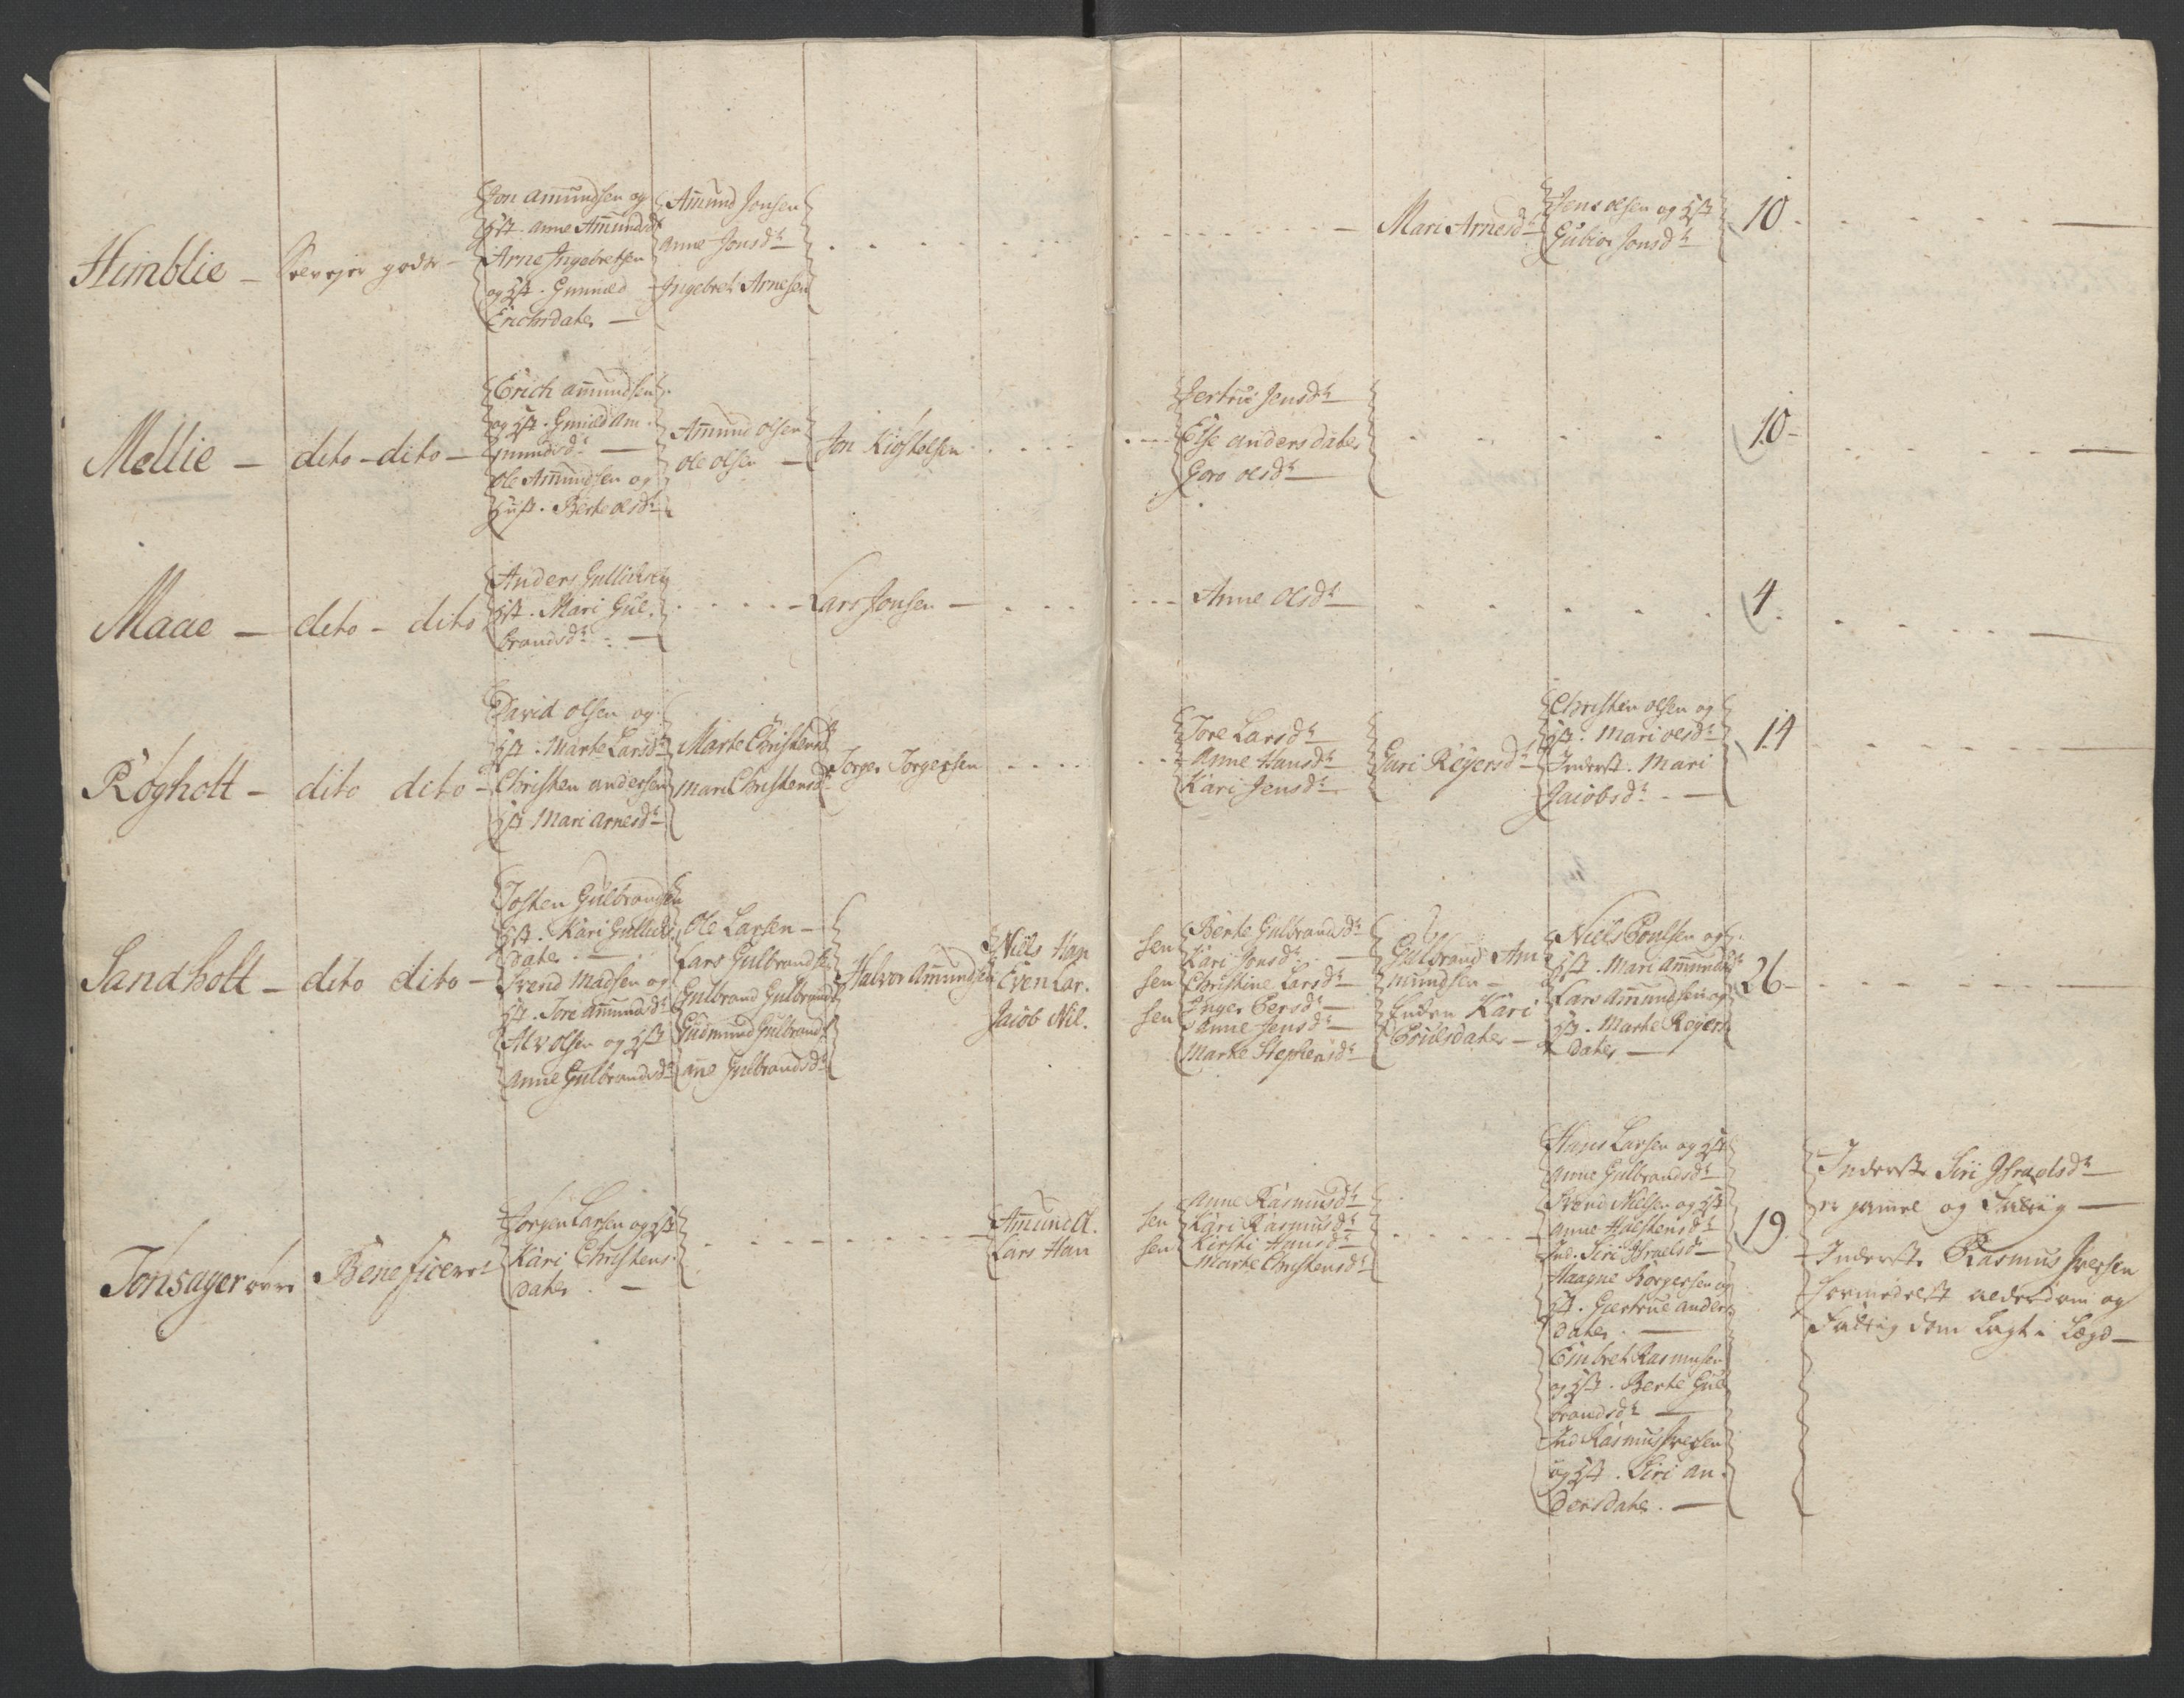 Himblie — Selvejer gods —
Jon Amundsen og
Hst. Anne Amundsd
Arne Ingebretsen
og Hst. Gunnild
Erichsdater —
Amund Jonsen
Anne Jonsdr —
Ingebret Arnesen
Mari Arnesdr —
Jens olsen og Hst
Gubior Jonsdr —
10 -
Mellie — dito - dito —
Erich Amundsen
og Hst. Gunild Am
mundsdr —
Ole Amundsen og
Hust. Berte olsdr —
Amund olsen
Ole olsen —
Jon Kiøstelsen
Jertrü Jensdr —
Else andersdater
Goro olsdr —
10 -
Maae — dito - dito
Anders Gullichsen
Hst. Mari Gul.
brandsdr —
Lars Jonsen —
Anne Olsdr —
4 -
Røgholt — dito dito -
David olsen og
Hst. Marte Larsdr
Christen andersen
Hst Mari Arnesdr
Marte Christensd
Mari Christensdr
Torger Torgersen
Tore Larsdr —
Anne Hansdr —
Kari Jensdr —
Guri Reyersdr —
Christen olsen og
Hst. Mari olsdr
Inderst. Mari
Jacobsdr —
14
Sandholt — dito dito —
Tosten Gulbrandsen
Hst. Kari Gullichs
dater —
Svend Madsen og
Hst. Tore Amundsdr
Alv olsen og Hst
Anne Gulbrandsdr
Ole Larsen —
Lars Gulbrandsen
Gulbrand Gulbrands
Gudmund Gulbrands
ane Gulbrandsdr
Halvor Amundsen
Niels Han
Even Lar.
Jacob Nil.
sen
sen
sen
Berte Gulbrandsdr
Kari Jonsdr —
Christine Larsdr —
Inger Persdr —
Anne Jensdr —
Marte Stephensdr
Gulbrand Am
mundsen —
Enken Kari
Povelsdater —
Niels Poulsen og
Hst. Mari Amundsd
Lars Amundsen og
Hst. Marte Reyers
dater —
26 -
Tonsager øvre Beneficeret
Jørgen Larsen og Hst
Kari Christens.
dater —
Amund A.
Lars Han
sen
sen
Anne Rasmusdr
Kari Rasmusdr
Kirsti Hansdr —
Marte Christensdr
Hans Larsen og Hst
Anne Gulbrandsdr
Svend Nielsen og Hst
Anne Halstensdr
Ind. Siri Israelsd —
Haagne Børgersen og
Hst. Giertrue anders
dater —
Embret Rasmusen
og Hst. Berte Gul
brandsdr —
Ind Rasmus Iversen
og Hst. Siri An.
dersdater —
19
Inderste Siri Israelsdr —
er gamel og Fattig —
Inderste Rasmus Iversen
formedelst alderdom og
Fattigdom lagt i Lægd —